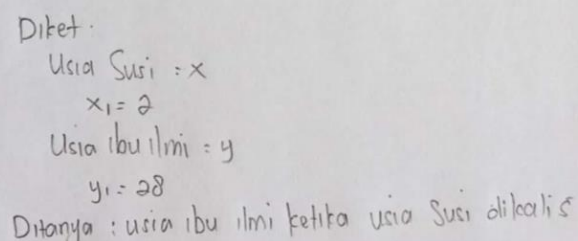 Diket.
Usia Susi : x
x₁ = 2
Usia ibu ilmi : y
y₁ = 28
Ditanya : usia ibu ilmi ketika usia Susi dikali 5